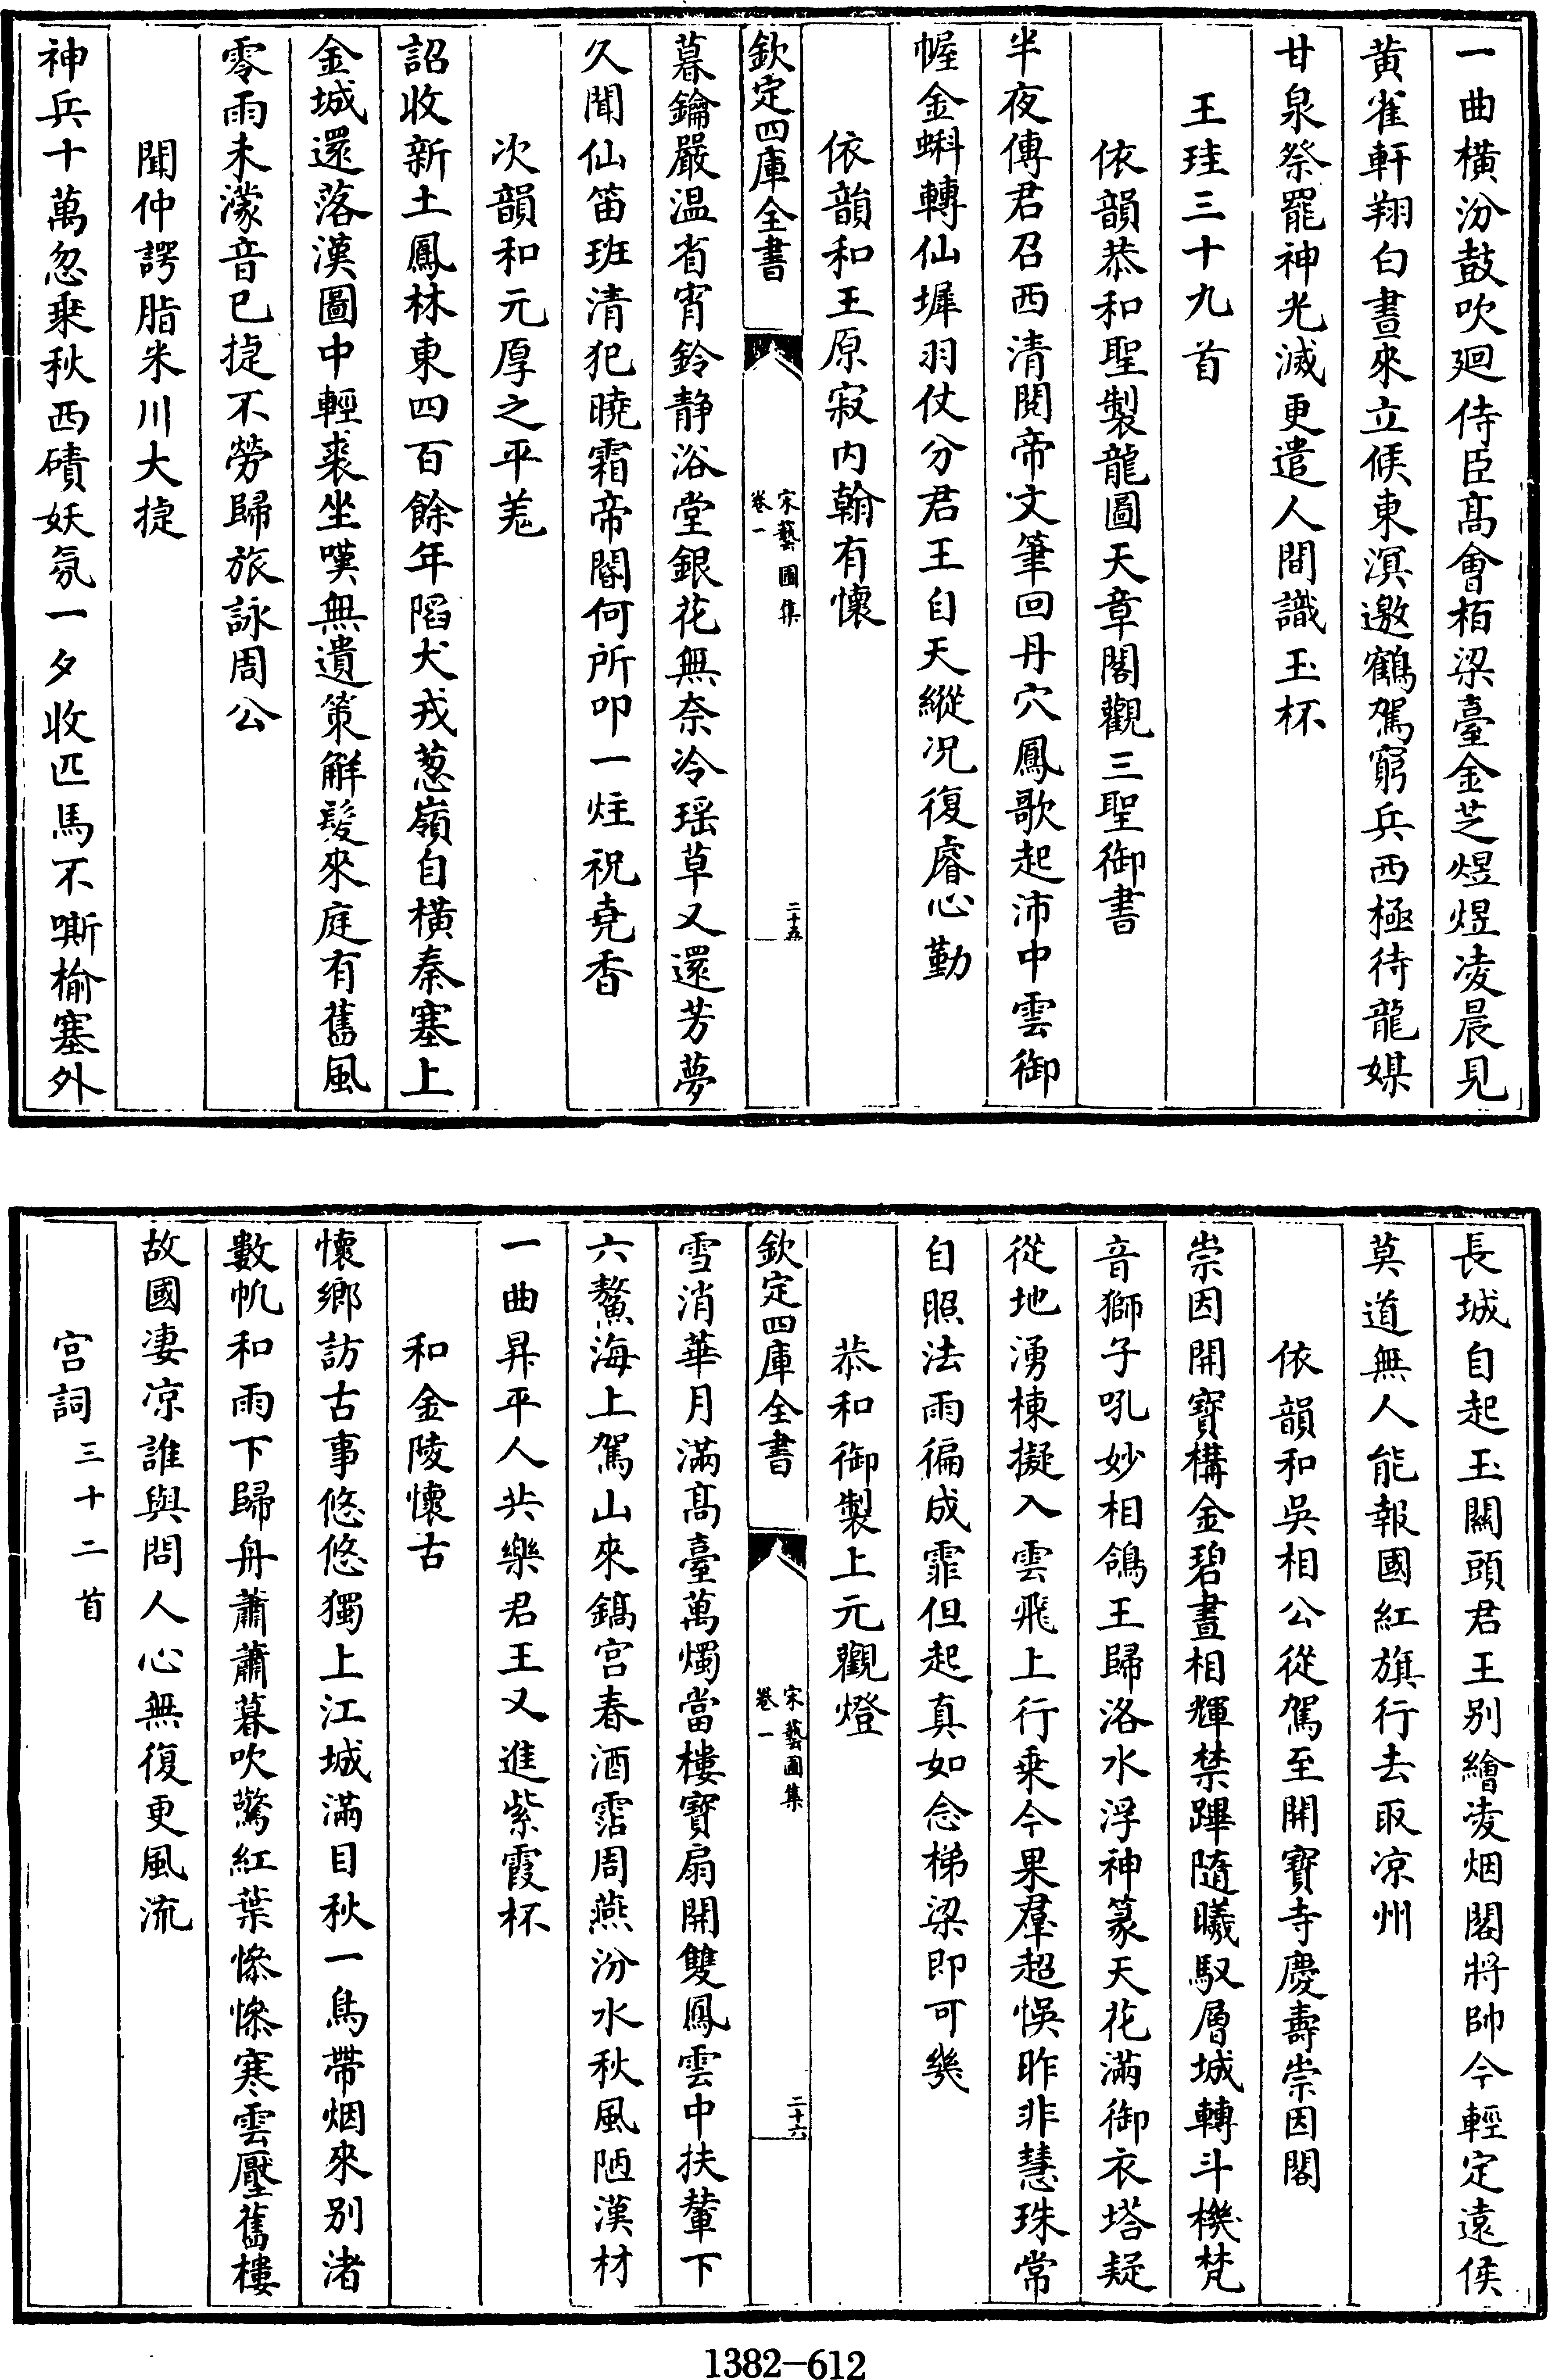 一曲橫汾鼓吹廻侍臣髙會栢梁臺金芝煜煜凌晨見
黄雀軒翔白晝來立候東溟邀鶴駕窮兵西極待龍媒
甘泉祭罷神光滅更遣人間識玉杯
王珪三十九首
依韻恭和聖製龍圖天章閣觀三聖御書
半夜傳君召西清閱帝文筆回丹穴鳳歌起沛中雲御
幄金蝌轉仙墀羽仗分君王自天縱况復睿心勤
依韻和王原寂内翰有懷
欽定四庫全書
宋藝圃集
卷一
二十五
暮鑰嚴温省宵鈴静浴堂銀花無奈冷瑶草又還芳夢
久聞仙笛班清犯曉霜帝閽何所叩一炷祝堯香
次韻和元厚之平羗
詔收新土鳳林東四百餘年陷犬戎葱嶺自横秦塞上
金城還落漢圖中輕裘坐嘆無遺策解髮來庭有舊風
零雨未濛音已㨗不勞歸旅詠周公
聞仲諤脂米川大㨗
神兵十萬忽乗秋西磧妖氛一夕收匹馬不嘶榆塞外
長城自起玉關頭君王别繪凌烟閣將帥今輕定遠侯
莫道無人能報國紅旗行去取凉州
依韻和吳相公從駕至開寶寺慶壽崇因閣
崇因開寶構金碧晝相輝禁蹕隨曦馭層城轉斗機梵
音獅子吼妙相鴿王歸洛水浮神篆天花滿御衣塔疑
從地湧棟擬入雲飛上行乗今果羣超悞昨非慧珠常
自照法雨徧成霏但起真如念梯梁即可幾
恭和御製上元觀燈
欽定四庫全書
宋藝圃集
卷一
二十六
雪消華月滿髙臺萬燭當樓寶扇開雙鳳雲中扶輦下
六鰲海上駕山來鎬宫春酒霑周燕汾水秋風陋漢材
一曲昇平人共樂君王又進紫霞杯
和金陵懷古
懷鄉訪古事悠悠獨上江城滿目秋一鳥帶烟來别渚
數帆和雨下歸舟蕭蕭暮吹驚紅葉慘慘寒雲壓舊樓
故國凄凉誰與問人心無復更風流
宫詞三十二首
1382-612